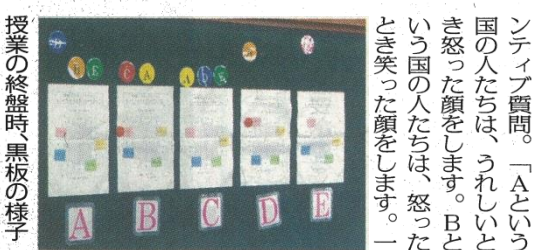 ンティブ質問。「Aという
国の人たちは、うれしいと
き怒った顔をします。Bと
いう国の人たちは、怒った
とき笑った顔をします。一
A
B
C
D
E
授業の終盤時、黒板の様子